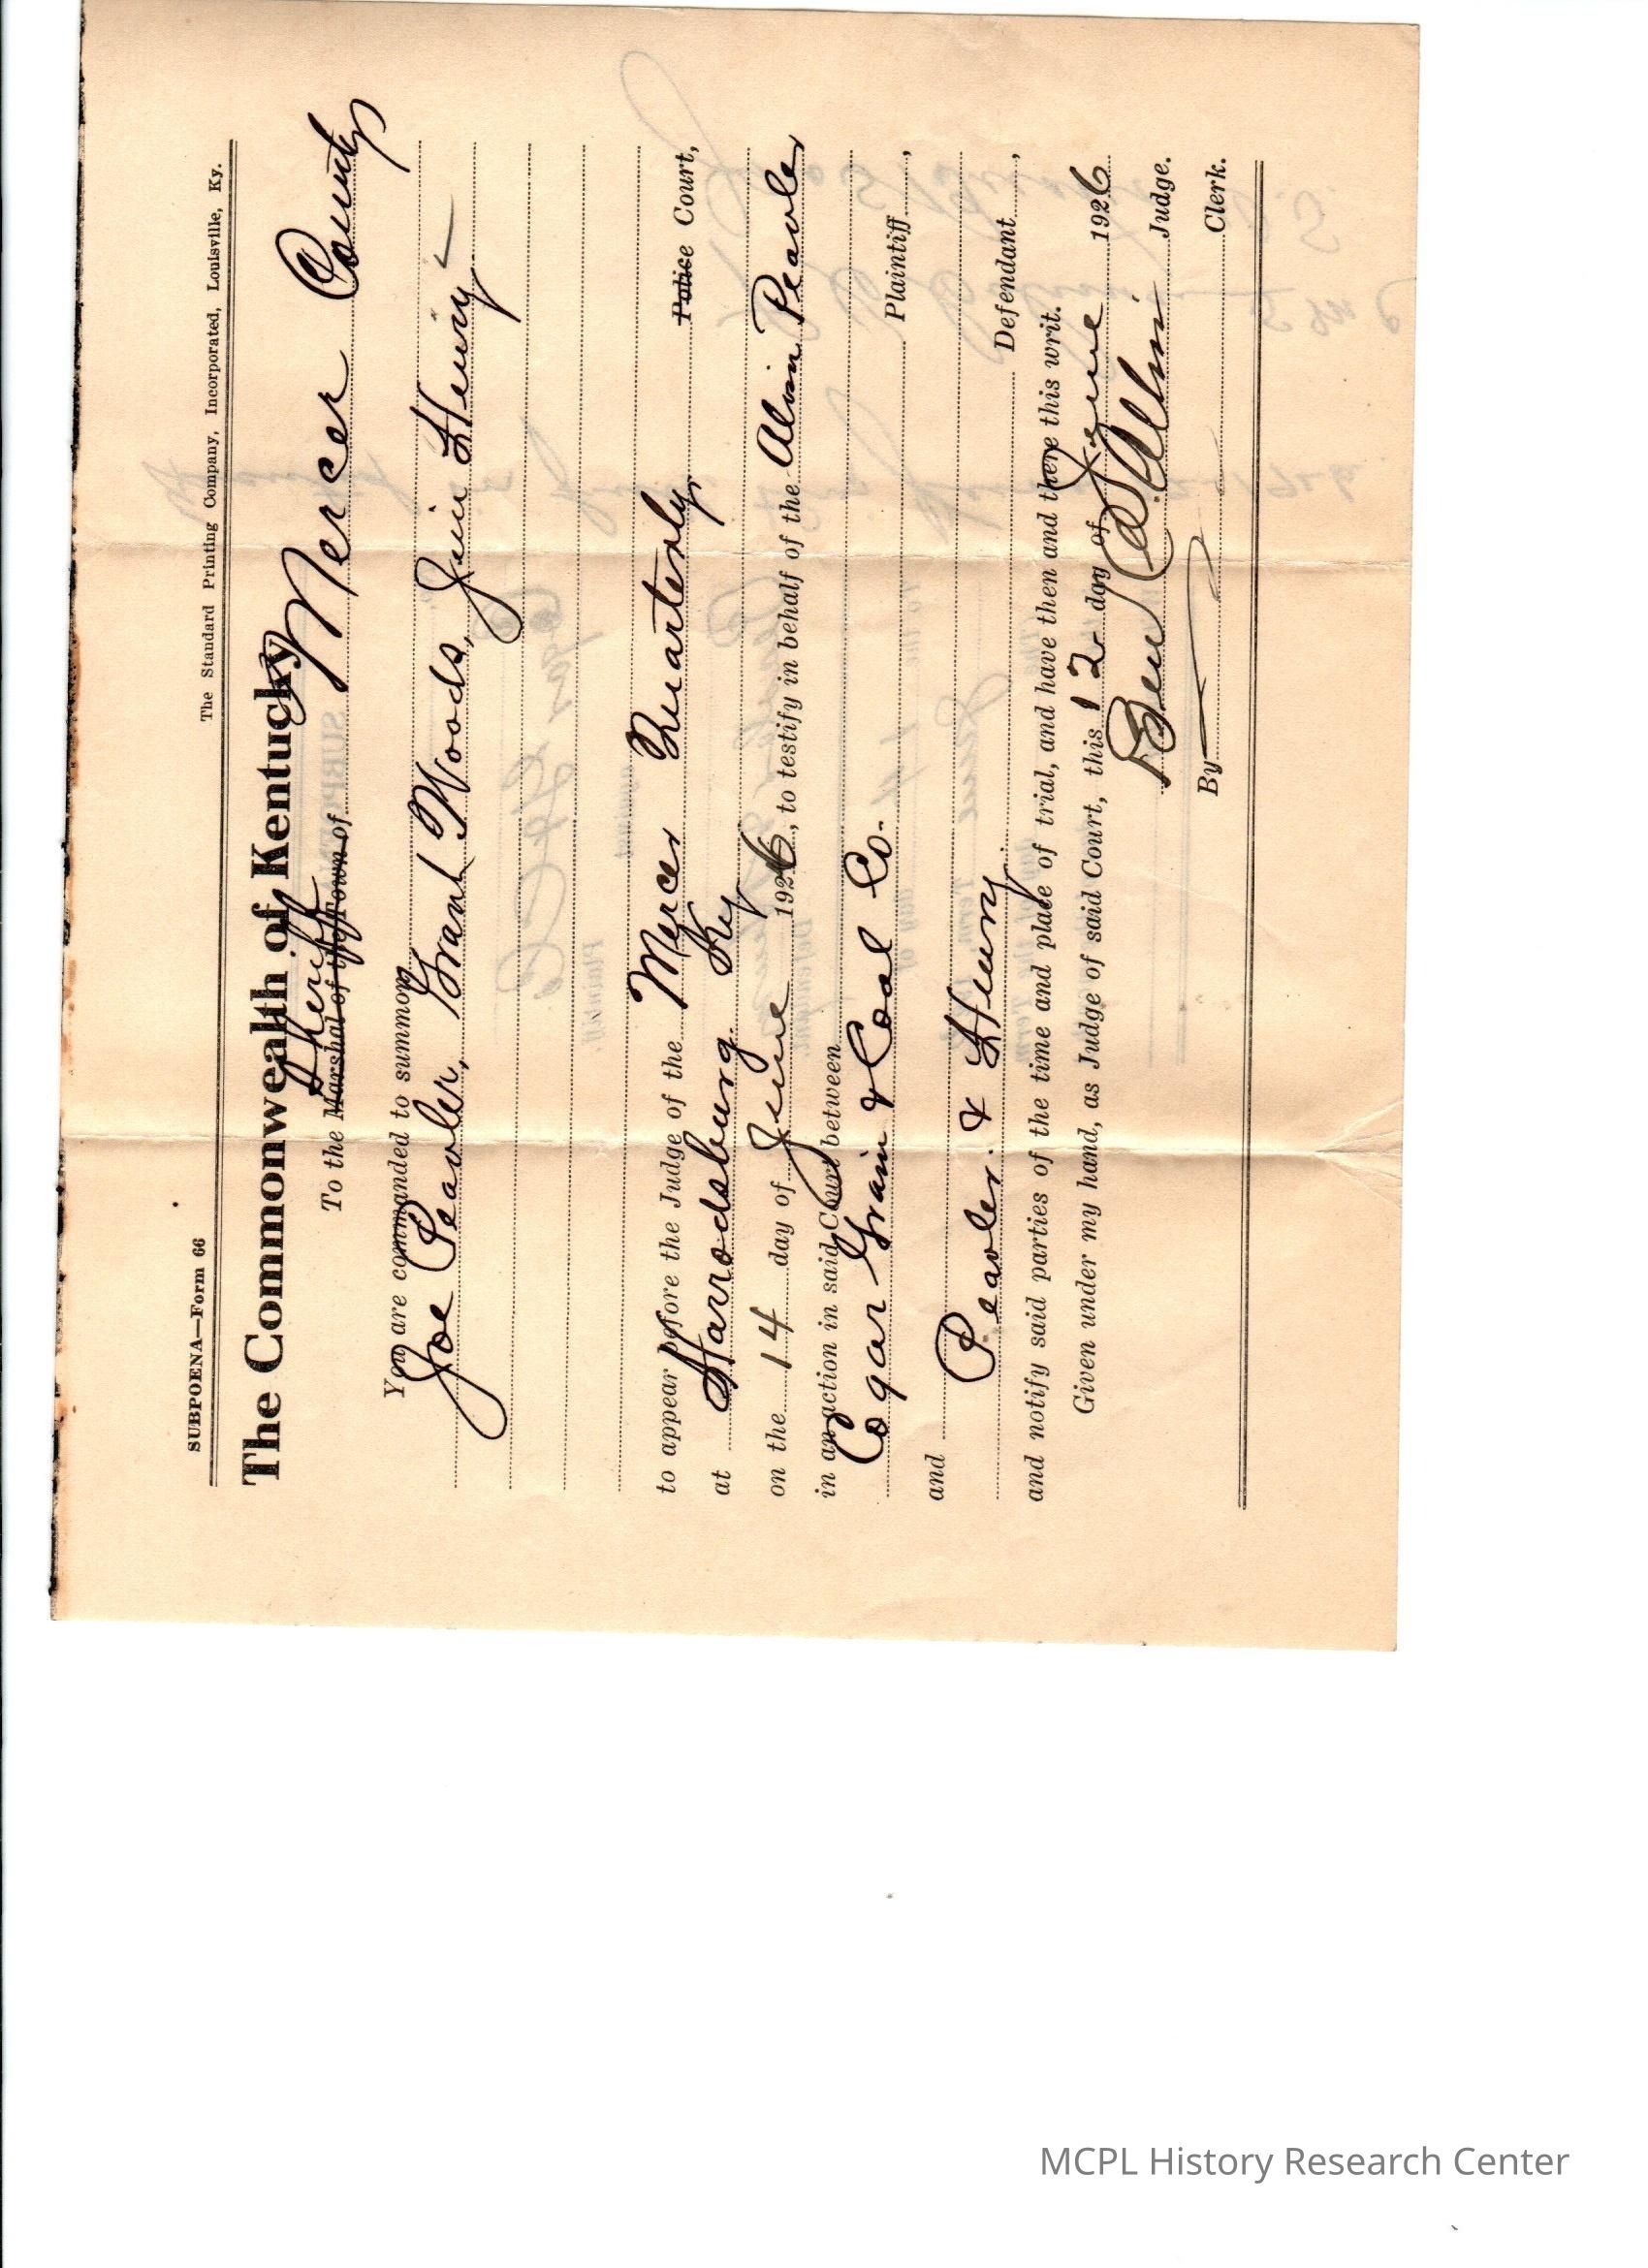 SUBPOENA—Form 66 The Standard Printing Company, Incorporated, Louisville, Ky.
The Commonwealth of Kentucky
Sheriff Mercer County
To the Marshal of the Town of
You are commanded to summon
Joe Peavler, Grant Woods, Jim Henry
to appear before the Judge of the Mercer Quarterly Police Court,
at Harrodsburg Ky
on the 14 day of June 1926, to testify in behalf of the Alvin Peavler
in an action in said Court between
Cogar Grain & Coal Co. Plaintiff,
and
Peavler & Henry Defendant,
and notify said parties of the time and place of trial, and have then and there this writ.
Given under my hand, as Judge of said Court, this 12 day of June 1926
Ben Judge.
By Clerk.
MCPL History Research Center